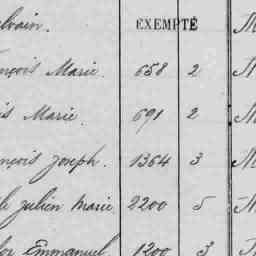 lvain. EXEMPTÉ M
nçois Marie. 658 2 M
is Marie. 691 2 M
nçois Joseph. 1364 3 M
le Julien Marie. 2200 5 M
Emmanuel 1200 3 M